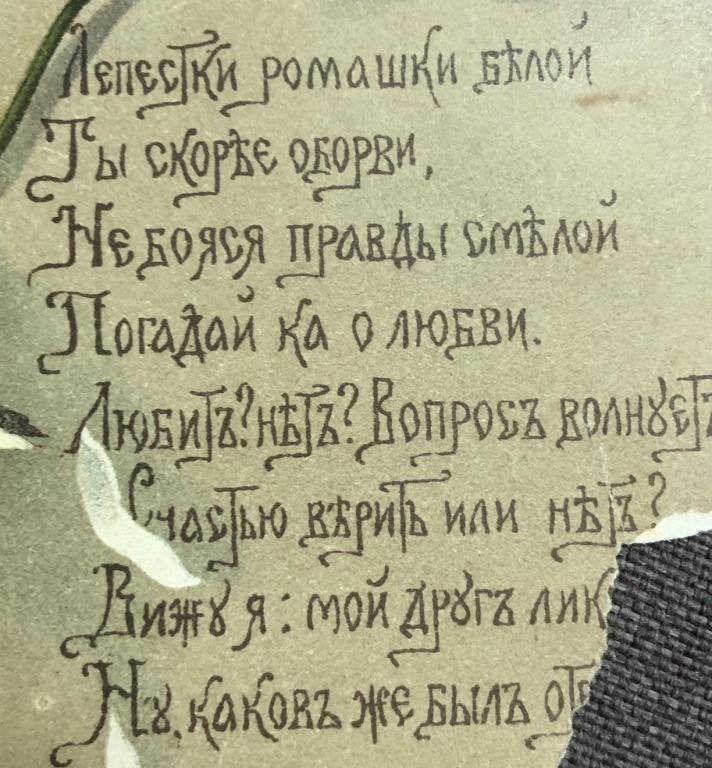 Лепестки ромашки бѣлой
Ты скорѣе оборви,
Не бояся правды смѣлой
Погадай ка о любви.
Любитъ? нѣтъ? Вопросъ волнуетъ
Счастью вѣрить или нѣтъ?
Вижу я: мой другъ лик
Ну, каковъ же былъ от